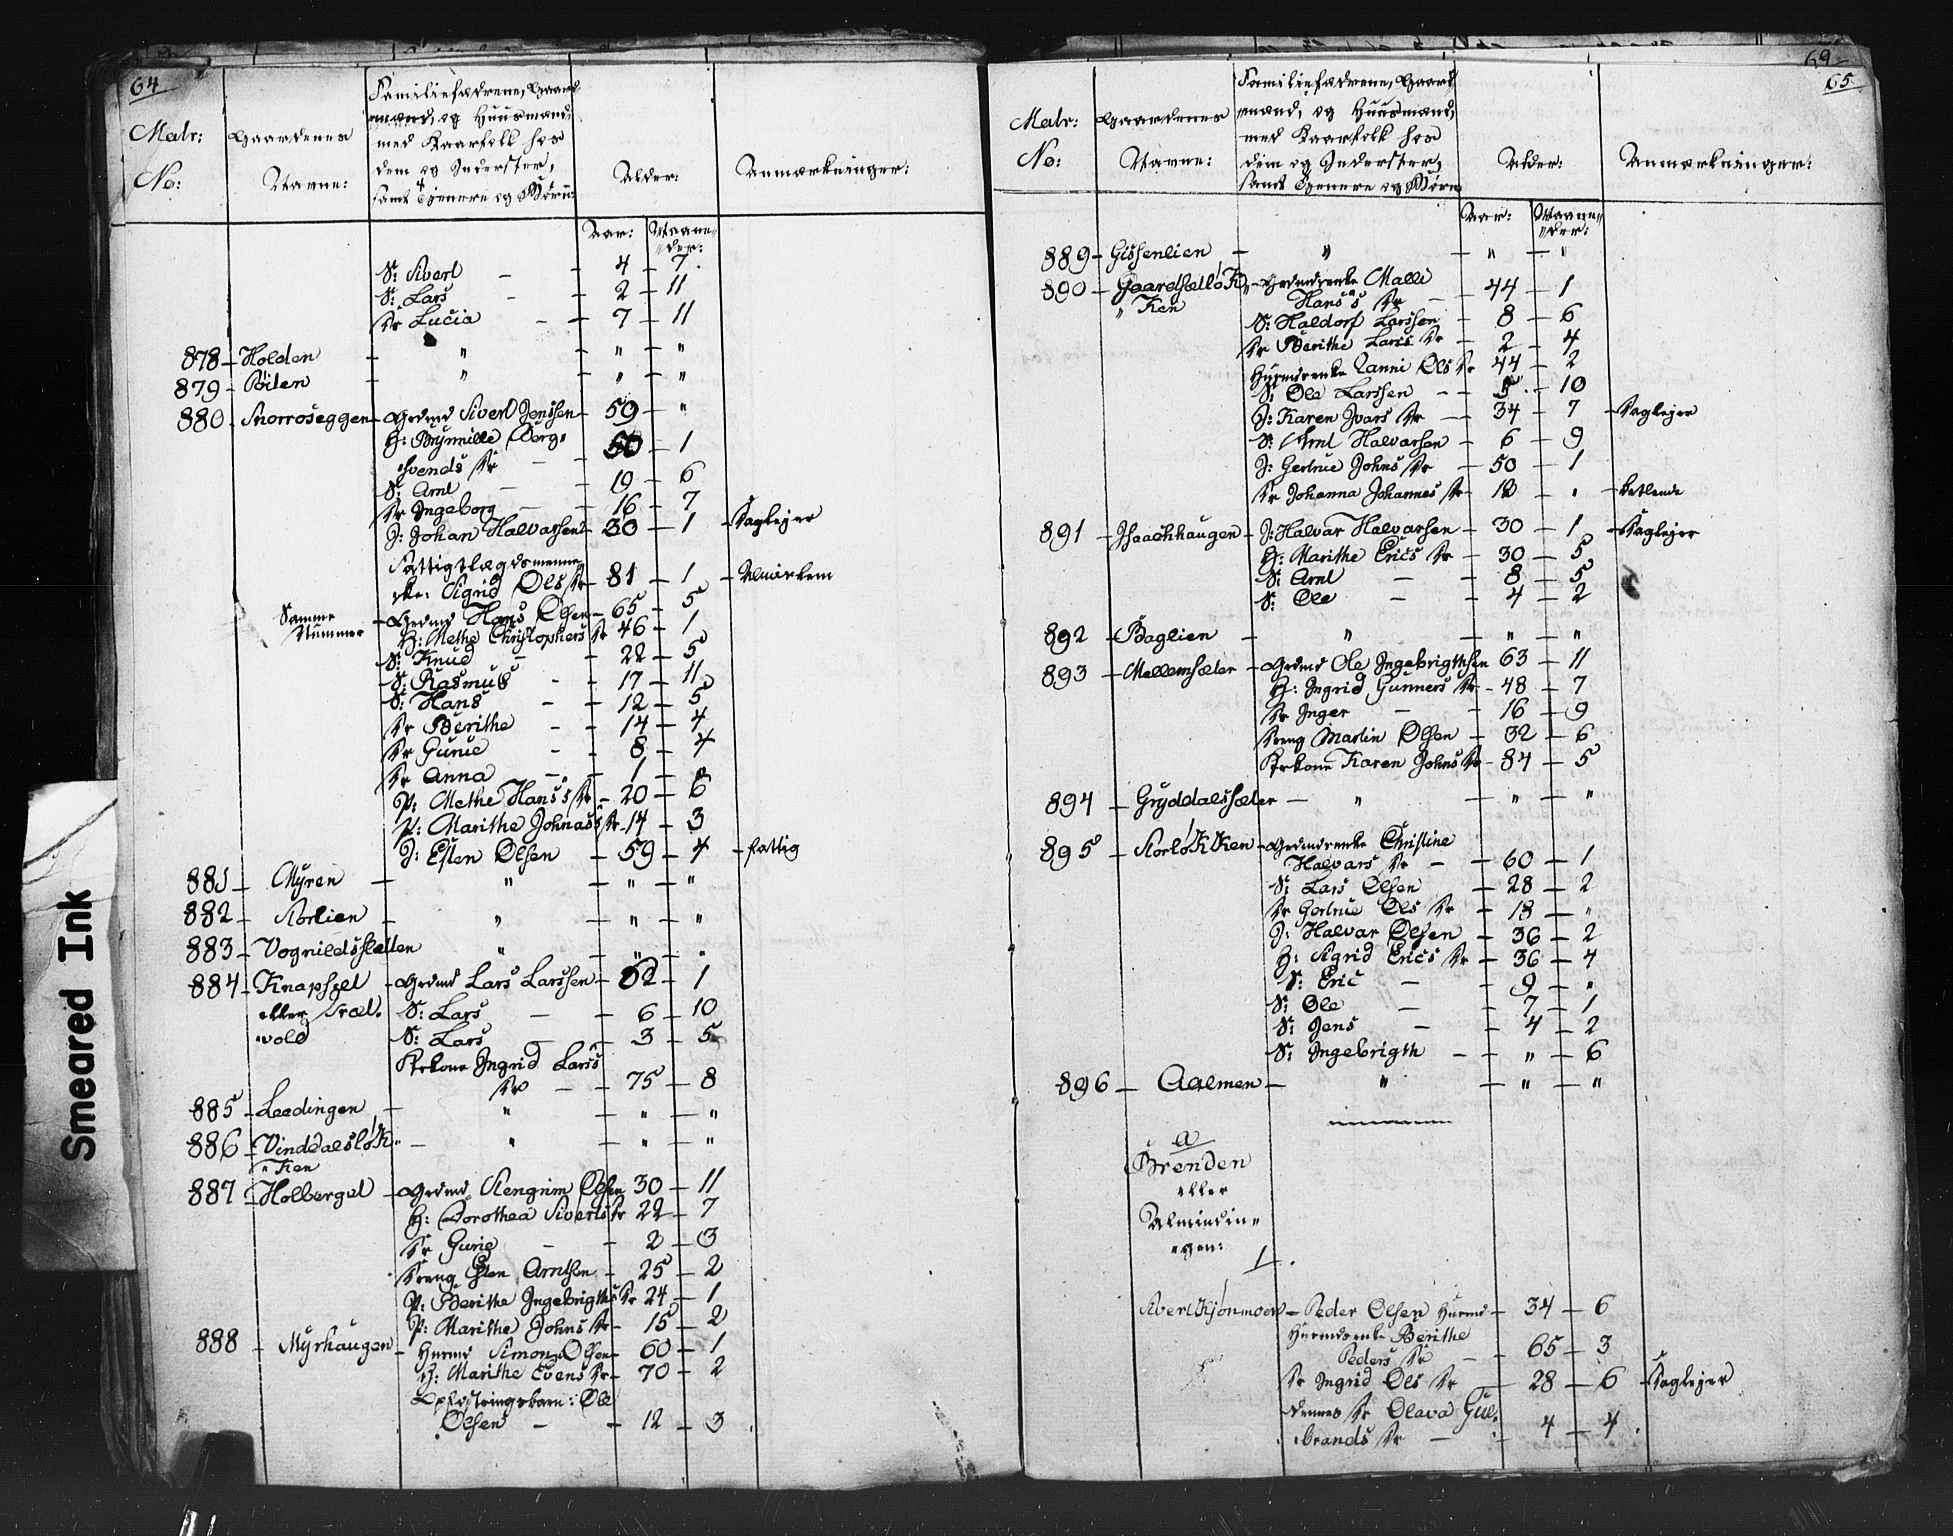 64
Matr: No:
Gaardenes Navne:
Familiefædrene, Gaard
mænd, og Huusmænd,
med Kaarfolk hos
dem og Inderster,
samt Tjenere og Børn
Alder:
Anmærkninger:
Aar: Maane-
der:
S: Sivert - - 4 - 7.
S: Lars - 2 - 11
Dr Lucia - - 7 - 11
878 - Holden - " - " - "
879 - Böilen - " - " - "
880 - Snorroseggen - Grdmd Sivert Jenssen - 59 - "
H: Brynnilde Berg-
svends Dr - 50 - 1
S: Arnt - - 19 - 6
Dr Ingeborg - - 16 - 7
J: Johan Halvarsen - 30 - 1 - Daglejer
Fattiglægdsmenne-
ske: Sigrid Ols Dr - 81 - 1 - Almisslem
Samme
Nummer
- Grdmd Hans Olsen - 65 - 5
H: Methe Christophers Dr 46 - 1
S: Knud - - 22 - 5
S: Rasmus - - 17 - 11
S: Hans - - 12 - 5
Dr Berithe - - 14 - 4
Dr Gurue - - 8 - 4
Dr Anna - - 1 - "
P: Methe Hans's Dr - 20 - 6
P: Marithe Johnas's Dr - 14 - 3
J: Esten Olsen - 59 - 4 - fattig
881 - Myren - " - " - "
882 - Storlien - " - " - "
883 - Vognildsslætten " - " - "
884 - Knapset - Grdmd Lars Larssen - 62 - 1
eller Træt- S: Lars - - 6 - 10
vold S: Lars - - 3 - 5
Krkone Ingrid Lars's
Dr - - 75 - 8
885 - Leedingen - " - " - "
886 - Vinddalsløk- - " - " - "
" ken
887 - Holberget - Grdmd Stengrim Olsen 30 - 11
H: Dorothea Siverts Dr 22 - 7
Dr Gurie - - 2 - 3
Dreng Esten Arntsen - 25 - 2
P: Berithe Ingebrigths Dr 24 - 1
P: Marithe Johns Dr - 15 - 2
888 - Myrhaugen - Husmd Simon Olsen - 60 - 1
H: Marithe Evens Dr - 70 - 2
Opfostringsbarn: Ole
Olsen - - 12 - 3
69
65
Matr: No:
Gaardenes Navne:
Familiefædrene, Gaard
mænd, og Huusmænd,
med Kaarfolk hos
dem og Inderster,
samt Tjenere og Børn
Alder:
Anmærkninger:
Aar: Maane-
der:
889 - Gissenlien - " - " - "
890 - Gaardsetløk- - Grdmdenke Malli
" ken Hans's Dr - 44 - 1
S: Haldorf Larssen - 8 - 6
Dr Berithe Lars's Dr - 2 - 4
Husmdenke Zanni Ols Dr 44 - 2
S: Ole Larssen - - 5 - 10
J: Karen Ivars Dr - 34 - 7 - Daglejer
S: Arnt Halvarsen - 6 - 9
J: Gertrue Johns Dr - 50 - 1
Dr Johanna Johannes Dr - 12 - " - betlende
891 - Isaachhaugen - J: Halvar Halvarsen - 30 - 1 - Daglejer
H: Marithe Erics Dr - 30 - 5
S: Arnt - - 8 - 5
S: Ole - - 4 - 2
892 - Baglien - " - " - "
893 - Mellemsæter - Grdmd Ole Ingebrigthsen 63 - 11
H: Ingrid Gunners Dr - 48 - 7
Dr Inger - - 16 - 9
Dreng Martin Olsen - 32 - 6
Krkone Karen Johns Dr - 84 - 5
894 - Gryddalssæter - " - " - "
895 - Storløkken - Grdmdenke Christine
Halvars Dr - - 60 - 1
S: Lars Olsen - 28 - 2
Dr Gertrue Ols Dr - 18 - "
J: Halvar Olsen - 36 - 2
H: Sigrid Erics Dr - 36 - 4
S: Eric - - 9 - "
S: Ole - - 7 - 1
S: Jens - - 4 - 2
S: Ingebrigth - - " - 6
896 - Aalmen - " - " - "
a
Brenden
eller
Almindin-
gen:
1.
Sivert Kjönmoen - Peder Olsen Husmd - 34 - 6
Husmdsenke Berithe
Peders Dr - 65 - 3
Dr Ingrid Ols Dr - 28 - 6 - Daglejer
dennes Dr Olava Gul-
brands Dr - - 4 - 4
Smeared Ink